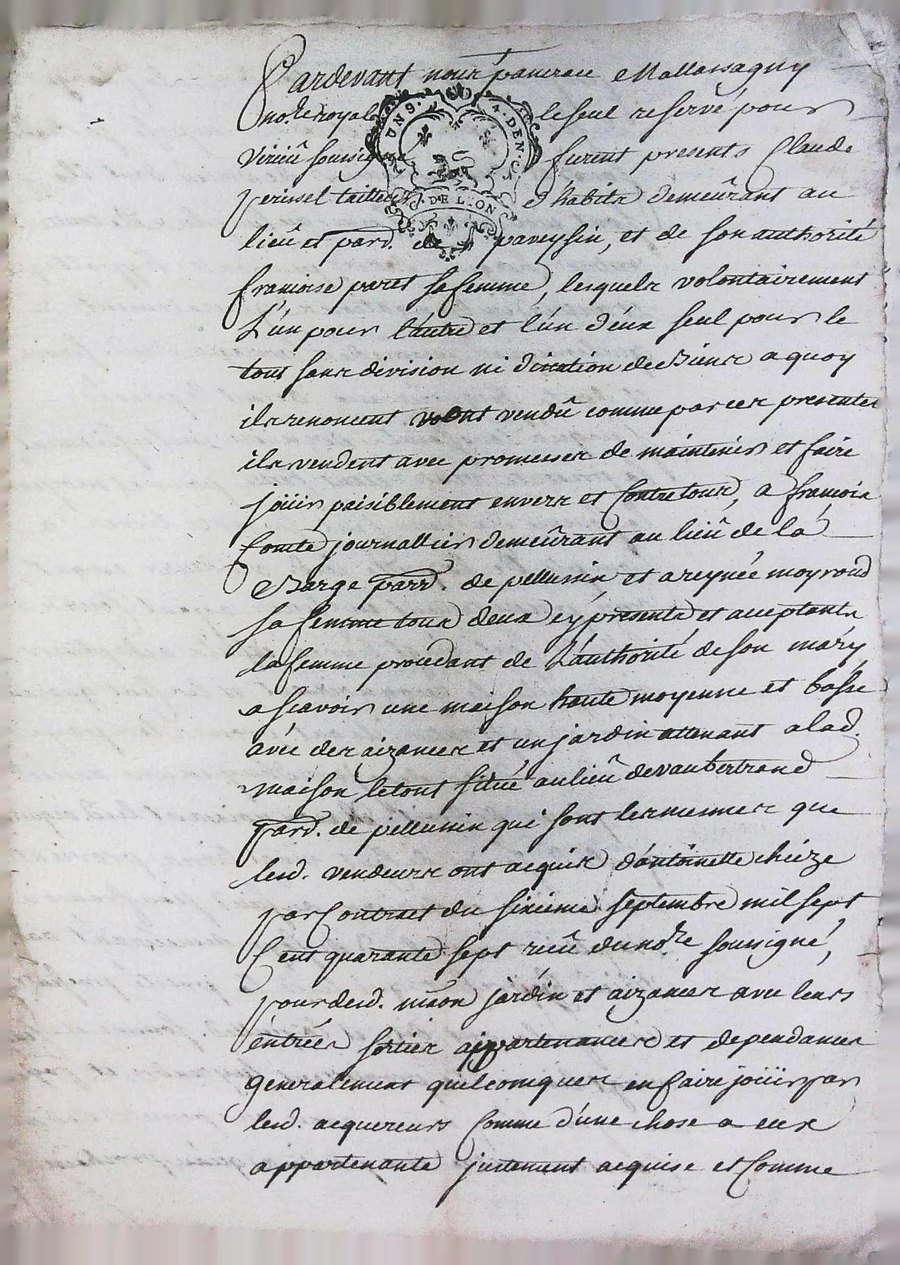 Pardevant nous pancrace Mallassagny
not.re royal le seul reservé pour
Virieû soussigné furent presents Claude
perinel tailleur d'habits demeûrant au
UN S. 4. DEN.
G. DE LION
lieû et parr. de paveysin, et de son authorité
francoise paret sa femme, lesquels volontairement
L'un pour l'autre et l'un d'eux seul pour le
tout sans division ni dication de biens a quoy
ils renoncent ont vendû comme par ces presentes
ils vendent avec promesses de maintenir et faire
joüir paisiblement envers et Contre tous, a françois
Comte journallier demeûrant au lieû de la
Barge parr. de pellusin et a reynée moyroud
sa femme tous deux cy presents et aceptants
la femme procedant de L'authorité de son mary
a scavoir une maison haute moyenne et basse
avec des aizances et un jardin attenant a lad.
maison le tout situé au lieû de vaubertrand
parr. de pellusin qui sont les mesmes que
lesd. vendeurs ont acquis d'antoinette chièze
par Contrat du sixieme septembre mil sept
Cent quarante sept reçû du not.re soussigné,
pour desd. maon jardin et aizances avec leurs
entrées sorties appartenances et dependances
generalement quelconques en faire joüir par
lesd. acquereurs Comme d'une chose a eux
appartenante justement acquise et Comme